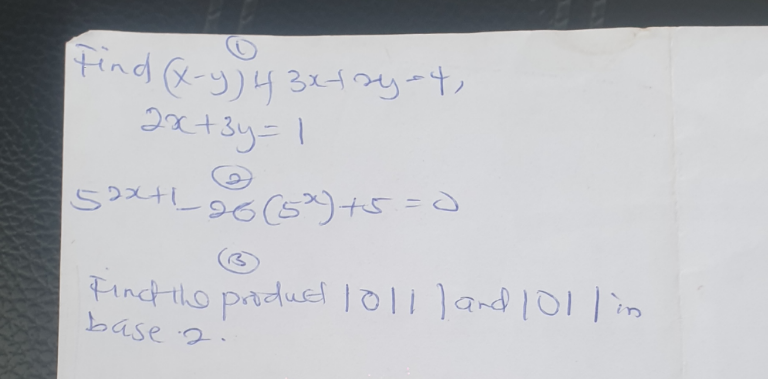 ①
Find (x-y) if 3x+2y=4,
2x+3y=1
②
5^{2x+1}-26(5^x)+5=0
③
Find the product 10111 and 1011 in
base 2.